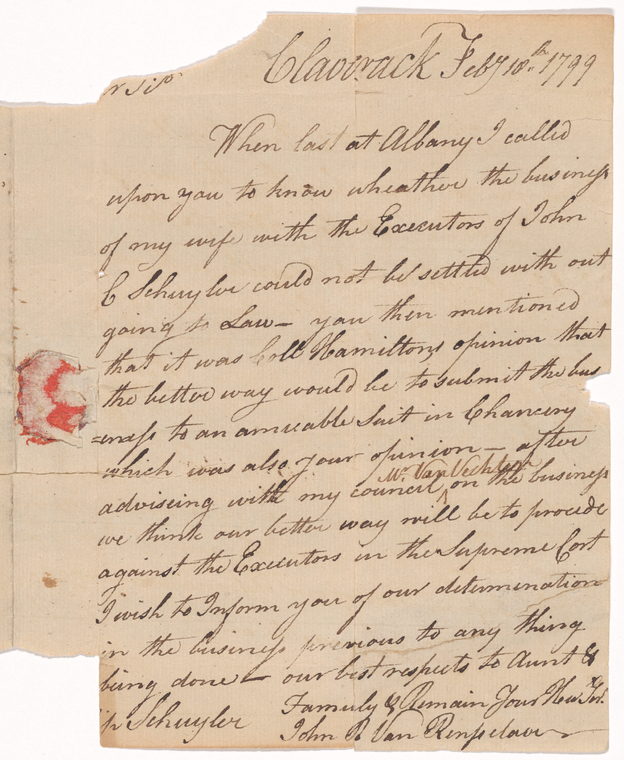 Claverack Feby 18th 1799
r Sir
When last at Albany I called
upon you to know wheather the business
of my wife with the Executors of John
C Schuyler could not be settled with out
going to Law — you then mentioned
that it was Coll Hamiltons opinion that
the better way would be to submit the bus
=eness to an amicable Suit in Chancery
which was also your opinion — after
Mr. Van Vechten
adviseing with my council ^ on the business
we think our better way will be to procede
against the Executors in the Supreme Cort
I wish to Inform you of our determination
in the business previous to any thing
being done — our best respects to Aunt &
Famuly & Remain Your Hum Ser.
p Schuyler
John R Van Rensselaer